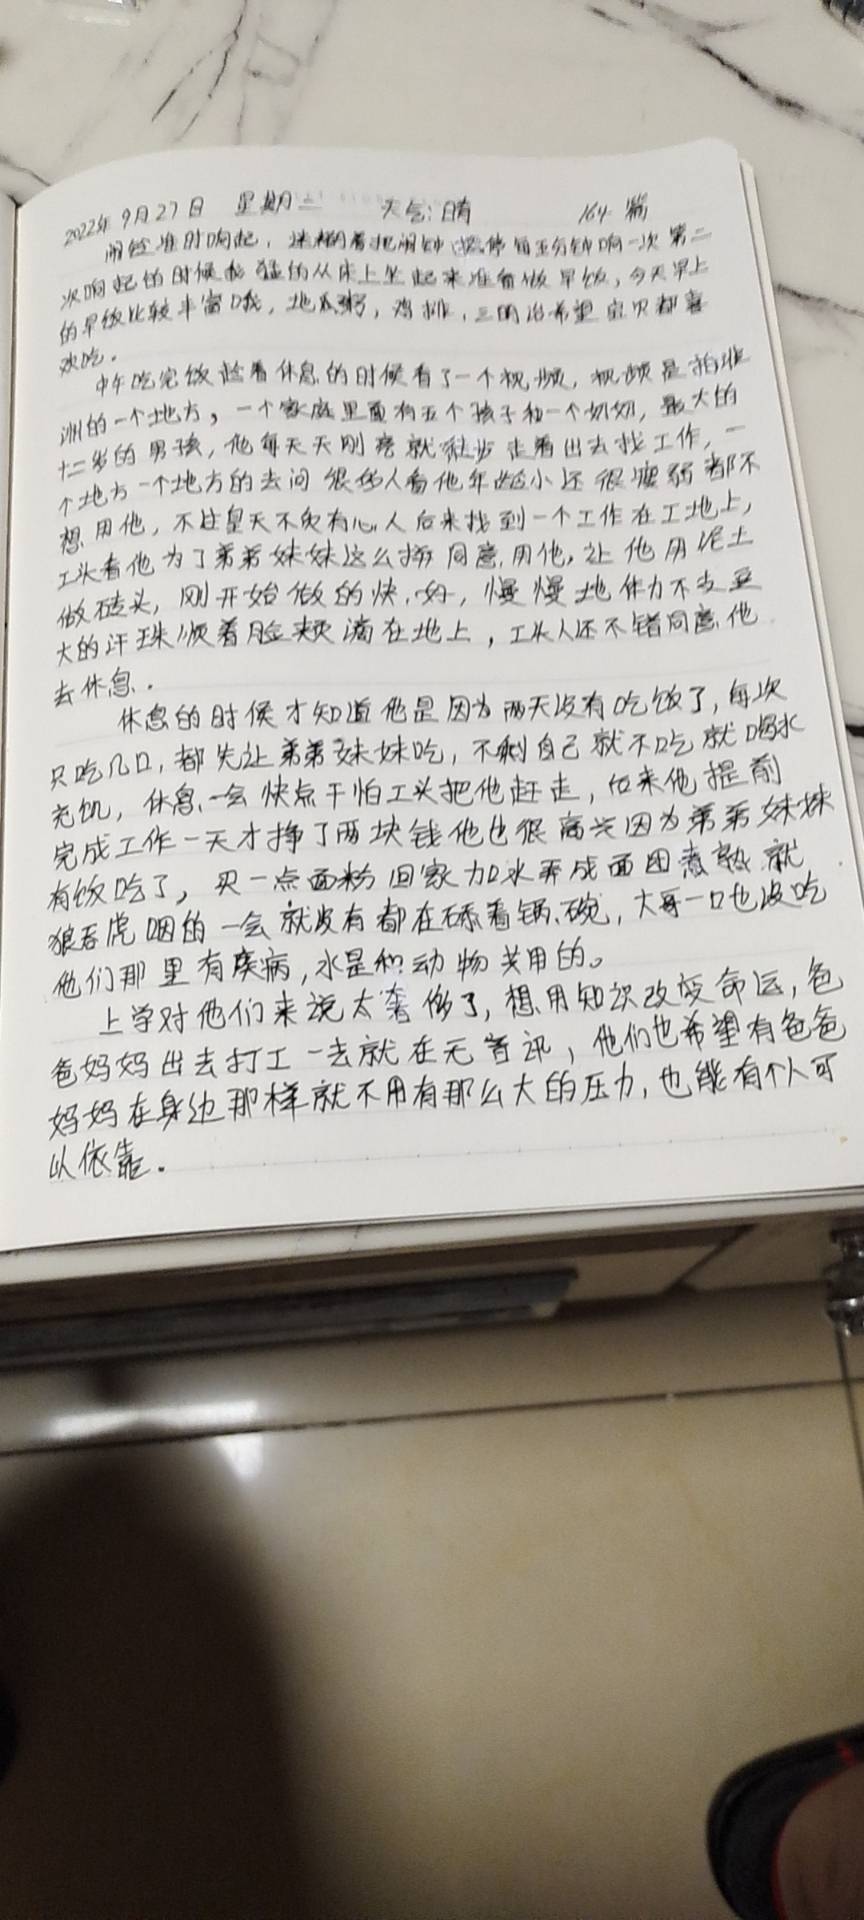 2022年9月27日 星期二 天气:晴 164篇
闹铃准时响起，迷糊着把闹钟按停每五分钟响一次第二
次响起的时候我猛的从床上坐起来准备做早饭，今天早上
的早饭比较丰富哦，地瓜粥，鸡排，三明治希望宝贝都喜
欢吃.
中午吃完饭趁着休息的时候看了一个视频，视频是拍非
洲的一个地方，一个家庭里面有五个孩子和一个奶奶，最大的
十二岁的男孩，他每天天刚亮就徒步走着出去找工作，一
个地方一个地方的去问很多人看他年龄小还很瘦弱都不
想用他，不过皇天不负有心人后来找到一个工作在工地上，
工头看他为了弟弟妹妹这么拼同意用他，让他用泥土
做砖头，刚开始做的快、好，慢慢地体力不支豆
大的汗珠顺着脸颊滴在地上，工头人还不错同意他
去休息.
休息的时候才知道他是因为两天没有吃饭了，每次
只吃几口，都先让弟弟妹妹吃，不剩自己就不吃就喝水
充饥，休息一会快点干怕工头把他赶走，后来他提前
完成工作一天才挣了两块钱他也很高兴因为弟弟妹妹
有饭吃了，买一点面粉回家加水弄成面团煮熟就
狼吞虎咽的一会就没有都在舔着锅、碗，大哥一口也没吃
他们那里有疾病，水是和动物共用的。
上学对他们来说太奢侈了，想用知识改变命运，爸
爸妈妈出去打工一去就在无音讯，他们也希望有爸爸
妈妈在身边那样就不用有那么大的压力，也能有个人可
以依靠.